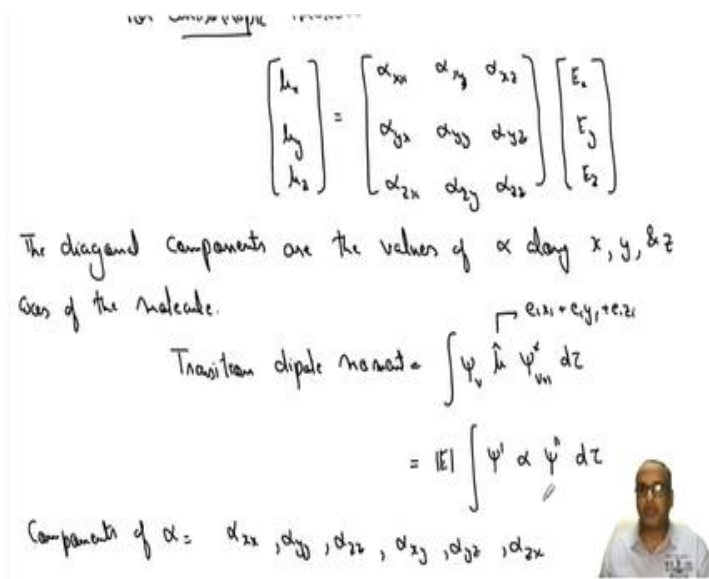 for anisotropic
[μx μy μz] = [αxx αxy αxz; αyx αyy αyz; αzx αzy αzz] [Ex Ey Ez]
The diagonal components are the values of α along x, y, & z
axes of the molecule.
e₁x₁ + e₁y₁ + e₁z₁
Transition dipole moment = ∫ ψv μ̂ ψ*v+1 dτ
= |E| ∫ ψ' α ψ'' dτ
Components of α = αxx, αyy, αzz, αxy, αyz, αzx